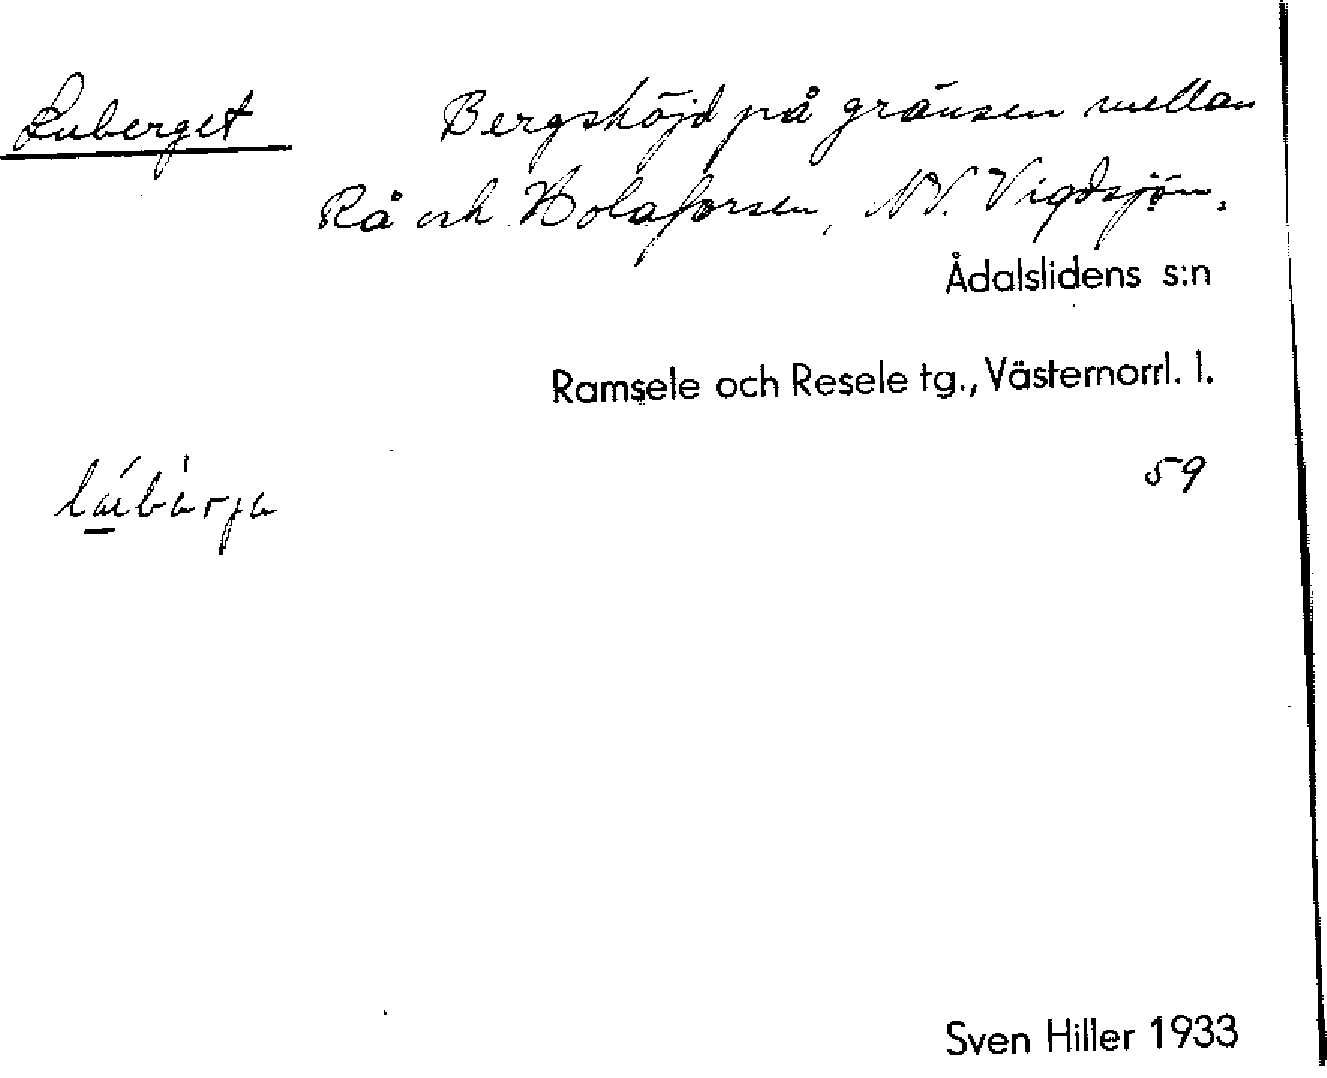 Luberget Bergshöjd på gränsen mellan
Rå och Holaforsen, NV. Vigdsjön.
Ådalslidens s:n
Ramsele och Resele tg., Västernorrl. l.
59
Sven Hiller 1933